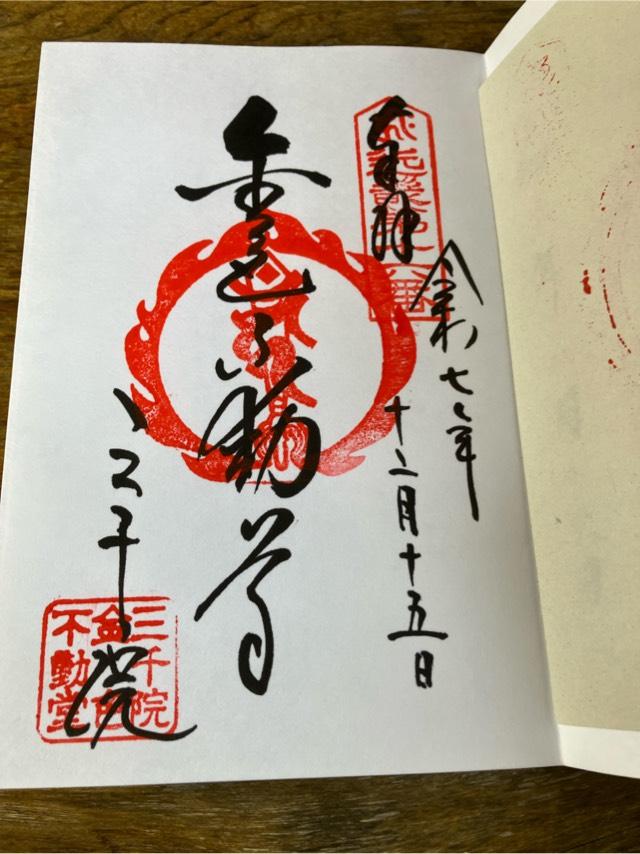 奉拝
令和七年
十二月十五日
金色不動尊
三千院
三千院
金色
不動堂